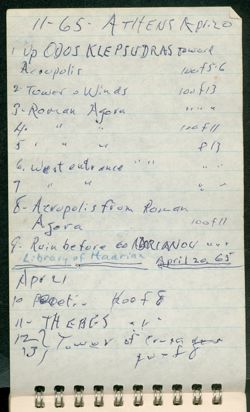 11-65- ATHENS Apr. 20
1 Up ODOS KLEPSUDRAS toward
Acropolis 100 of 5-6
2- Tower o Winds 100 f 13
3- Roman Agora " " "
4- " " 100 f 11
5 " " f 13
6. West entrance " " " "
7 " "
8- Acropolis from Roman
Agora 100 f 11
9- Ruin before 60 " "
Library of Hadrian April 20, 65
Apr 21
10 f 8
11- THEBES " "
12
13, Tower of
f 8